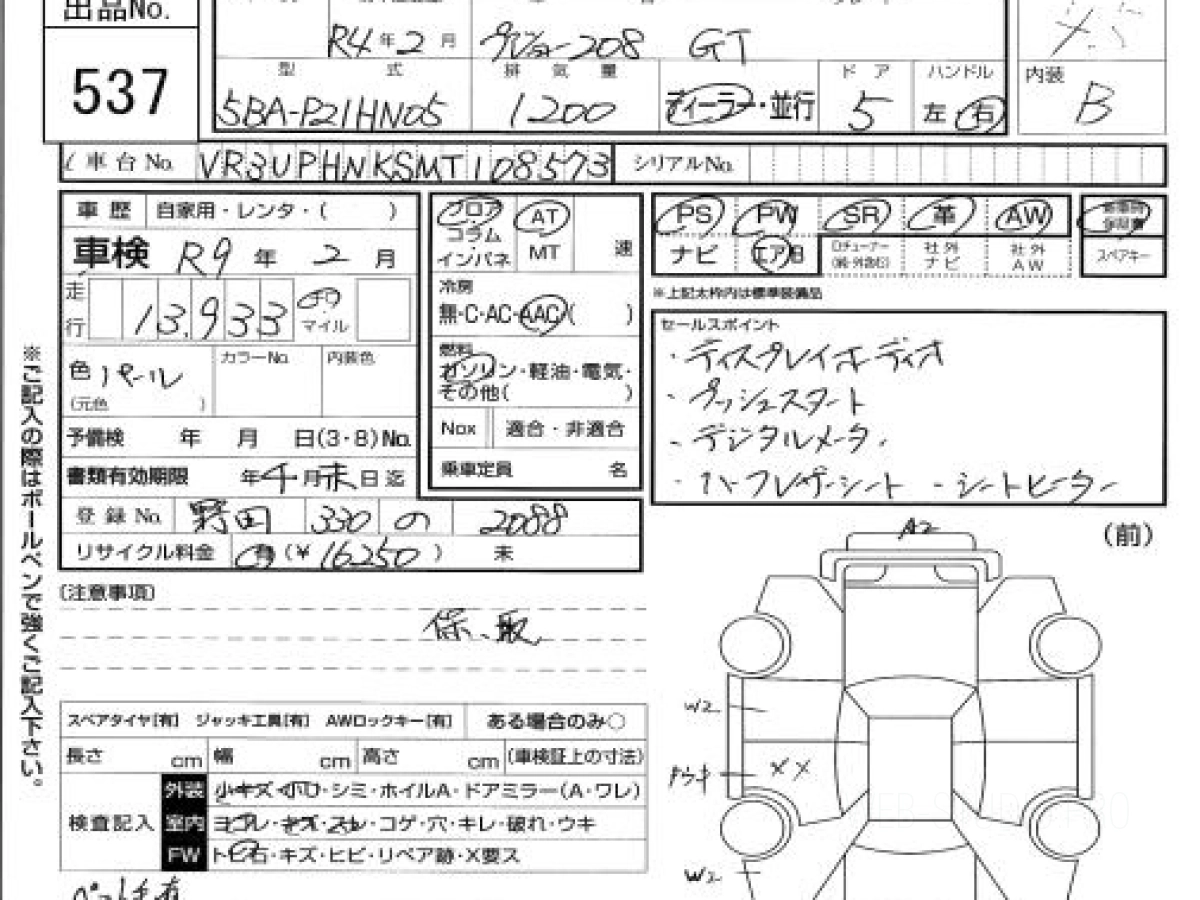 出品No.
537
R4年2月 プジョー208 GT
型式 排気量 ドア ハンドル 内装
5BA-P21HN05 1200 ディーラー・並行 5 左 右 B
車台No. VR3UPHNKSMT108573 シリアルNo.
車歴 自家用・レンタ・( )
車検 R9年2月
走行 13,933 マイル
色 パール カラーNo. 内装色
(元色 )
予備検 年 月 日(3・8)No.
書類有効期限 年4月末日迄
登録No. 野田 330 の 2088
リサイクル料金 有(¥16250) 未
フロア AT
コラム
インパネ MT 速
冷房
無・C・AC・AAC( )
燃料
ガソリン・軽油・電気・
その他( )
Nox 適合・非適合
乗車定員 名
PS PW SR 革 AW 新車時保証書
ナビ エアB ロチューナー(純・外含む) 社外ナビ 社外AW スペアキー
※上記太枠内は標準装備品
セールスポイント
・ディスプレイオーディオ
・プッシュスタート
・デジタルメータ
・ハーフレザーシート ・シートヒーター
※ご記入の際はボールペンで強くご記入下さい。
(注意事項)
保、取
スペアタイヤ[有] ジャッキ工具[有] AWロックキー[有] ある場合のみ○
長さ cm 幅 cm 高さ cm (車検証上の寸法)
検査記入
外装 小キズ・凹・シミ・ホイルA・ドアミラー(A・ワレ)
室内 ヨゴレ・キズ・スレ・コゲ・穴・キレ・破れ・ウキ
FW トビ石・キズ・ヒビ・リペア跡・X要ス
(前)
A2
W2
XX
W2